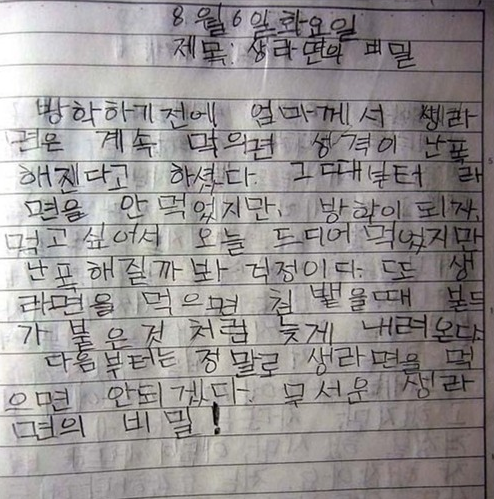 8월6일화요일
제목: 생라면의 비밀
방학하기전에 엄마께서 쌩라
면은 계속 먹의면 성격이 난폭
해진다고 하셨다. 그때부터 라
면을 안 먹었지만, 방학이 되자,
먹고 싶어서 오늘 드디어 먹었지만
난폭해질까봐 걱정이다. 또 생
라면을 먹으면 침 뱉을때 본드
가 붙은것 처럼 늦게 내려온다.
다음부터는 정말로 생라면을 먹
으면 안되겠다. 무서운 생라
면의 비밀!